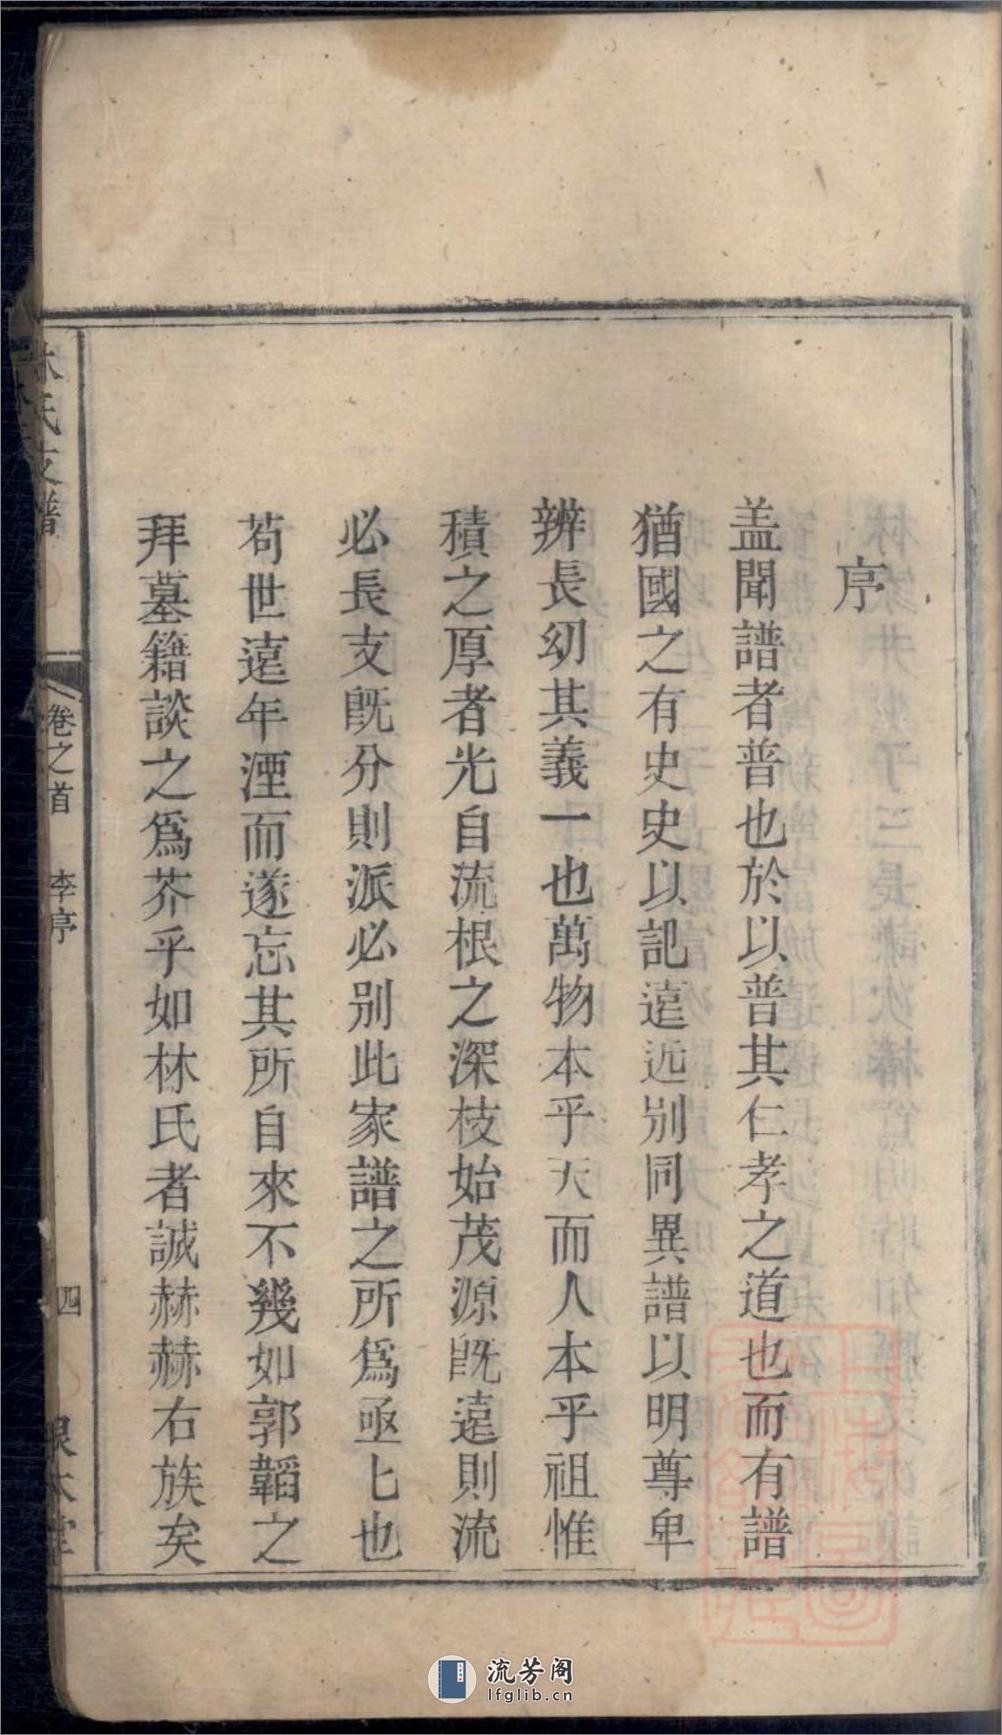 序
盖聞譜者普也於以普其仁孝之道也而有譜
猶國之有史史以記遠近别同異譜以明尊卑
辨長幼其義一也萬物本乎天而人本乎祖惟
積之厚者光自流根之深枝始茂源旣遠則流
必長支旣分則派必别此家譜之所爲亟亟也
苟世遠年湮而遂忘其所自來不幾如郭韜之
拜墓籍談之爲芥乎如林氏者誠赫赫右族矣
林氏支譜
卷之首
李序
四
流芳阁
lfglib.cn